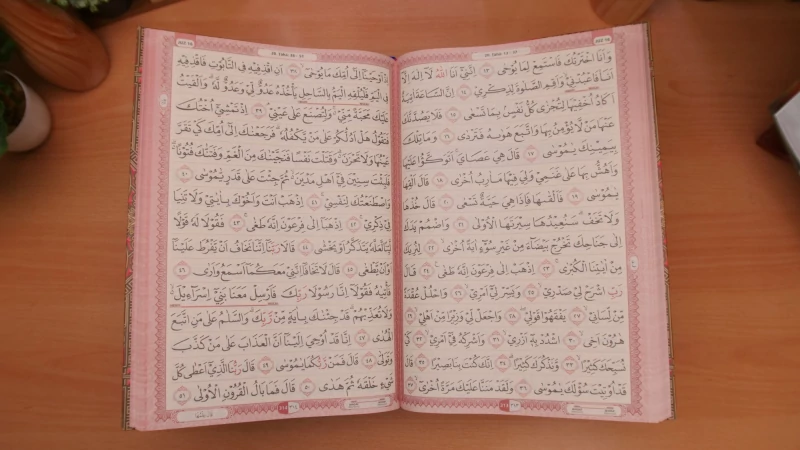 JUZ 16
وَاَنَا اخْتَرْتُكَ فَاسْتَمِعْ لِمَا يُوْحٰى ١٣ اِنَّنِيْٓ اَنَا اللّٰهُ لَآ اِلٰهَ اِلَّآ
اَنَا۠ فَاعْبُدْنِيْۙ وَاَقِمِ الصَّلٰوةَ لِذِكْرِيْ ١٤ اِنَّ السَّاعَةَ اٰتِيَةٌ
اَكَادُ اُخْفِيْهَا لِتُجْزٰى كُلُّ نَفْسٍۢ بِمَا تَسْعٰى ١٥ فَلَا يَصُدَّنَّكَ
عَنْهَا مَنْ لَّا يُؤْمِنُ بِهَا وَاتَّبَعَ هَوٰىهُ فَتَرْدٰى ١٦ وَمَا تِلْكَ
بِيَمِيْنِكَ يٰمُوْسٰى ١٧ قَالَ هِيَ عَصَايَۚ اَتَوَكَّؤُا عَلَيْهَا
وَاَهُشُّ بِهَا عَلٰى غَنَمِيْ وَلِيَ فِيْهَا مَاٰرِبُ اُخْرٰى ١٨ قَالَ اَلْقِهَا
يٰمُوْسٰى ١٩ فَاَلْقٰىهَا فَاِذَا هِيَ حَيَّةٌ تَسْعٰى ٢٠ قَالَ خُذْهَا
وَلَا تَخَفْۗ سَنُعِيْدُهَا سِيْرَتَهَا الْاُوْلٰى ٢١ وَاضْمُمْ يَدَكَ
اِلٰى جَنَاحِكَ تَخْرُجْ بَيْضَاۤءَ مِنْ غَيْرِ سُوْۤءٍ اٰيَةً اُخْرٰى ٢٢ لِنُرِيَكَ
مِنْ اٰيٰتِنَا الْكُبْرٰى ٢٣ اِذْهَبْ اِلٰى فِرْعَوْنَ اِنَّهٗ طَغٰى ٢٤ قَالَ
رَبِّ اشْرَحْ لِيْ صَدْرِيْ ٢٥ وَيَسِّرْ لِيْٓ اَمْرِيْ ٢٦ وَاحْلُلْ عُقْدَةً
مِّنْ لِّسَانِيْ ٢٧ يَفْقَهُوْا قَوْلِيْ ٢٨ وَاجْعَلْ لِّيْ وَزِيْرًا مِّنْ اَهْلِيْ ٢٩
هٰرُوْنَ اَخِى ٣٠ اشْدُدْ بِهٖٓ اَزْرِيْ ٣١ وَاَشْرِكْهُ فِيْٓ اَمْرِيْ ٣٢ كَيْ
نُسَبِّحَكَ كَثِيْرًا ٣٣ وَّنَذْكُرَكَ كَثِيْرًا ٣٤ اِنَّكَ كُنْتَ بِنَا بَصِيْرًا ٣٥ قَالَ
قَدْ اُوْتِيْتَ سُؤْلَكَ يٰمُوْسٰى ٣٦ وَلَقَدْ مَنَنَّا عَلَيْكَ مَرَّةً اُخْرٰىٓ ٣٧
٣١٣
JUZ 16
اِذْ اَوْحَيْنَآ اِلٰٓى اُمِّكَ مَا يُوْحٰىٓ ٣٨ اَنِ اقْذِفِيْهِ فِى التَّابُوْتِ فَاقْذِفِيْهِ
فِى الْيَمِّ فَلْيُلْقِهِ الْيَمُّ بِالسَّاحِلِ يَأْخُذْهُ عَدُوٌّ لِّيْ وَعَدُوٌّ لَّهٗۗ وَاَلْقَيْتُ
عَلَيْكَ مَحَبَّةً مِّنِّيْ ەۚ وَلِتُصْنَعَ عَلٰى عَيْنِيْ ٣٩ اِذْ تَمْشِيْٓ اُخْتُكَ
فَتَقُوْلُ هَلْ اَدُلُّكُمْ عَلٰى مَنْ يَّكْفُلُهٗۗ فَرَجَعْنٰكَ اِلٰٓى اُمِّكَ كَيْ تَقَرَّ
عَيْنُهَا وَلَا تَحْزَنَ ەۗ وَقَتَلْتَ نَفْسًا فَنَجَّيْنٰكَ مِنَ الْغَمِّ وَفَتَنّٰكَ فُتُوْنًا
فَلَبِثْتَ سِنِيْنَ فِيْٓ اَهْلِ مَدْيَنَ ەۙ ثُمَّ جِئْتَ عَلٰى قَدَرٍ يّٰمُوْسٰى ٤٠
وَاصْطَنَعْتُكَ لِنَفْسِيْۚ ٤١ اِذْهَبْ اَنْتَ وَاَخُوْكَ بِاٰيٰتِيْ وَلَا تَنِيَا
فِيْ ذِكْرِيْۚ ٤٢ اِذْهَبَآ اِلٰى فِرْعَوْنَ اِنَّهٗ طَغٰىۚ ٤٣ فَقُوْلَا لَهٗ قَوْلًا
لَّيِّنًا لَّعَلَّهٗ يَتَذَكَّرُ اَوْ يَخْشٰى ٤٤ قَالَا رَبَّنَآ اِنَّنَا نَخَافُ اَنْ يَّفْرُطَ عَلَيْنَآ
اَوْ اَنْ يَّطْغٰى ٤٥ قَالَ لَا تَخَافَآ اِنَّنِيْ مَعَكُمَآ اَسْمَعُ وَاَرٰى ٤٦
فَأْتِيٰهُ فَقُوْلَآ اِنَّا رَسُوْلَا رَبِّكَ فَاَرْسِلْ مَعَنَا بَنِيْٓ اِسْرَاۤءِيْلَ
وَلَا تُعَذِّبْهُمْۗ قَدْ جِئْنٰكَ بِاٰيَةٍ مِّنْ رَّبِّكَۗ وَالسَّلٰمُ عَلٰى مَنِ اتَّبَعَ
الْهُدٰى ٤٧ اِنَّا قَدْ اُوْحِيَ اِلَيْنَآ اَنَّ الْعَذَابَ عَلٰى مَنْ كَذَّبَ
وَتَوَلّٰى ٤٨ قَالَ فَمَنْ رَّبُّكُمَا يٰمُوْسٰى ٤٩ قَالَ رَبُّنَا الَّذِيْٓ اَعْطٰى كُلَّ
شَيْءٍ خَلْقَهٗ ثُمَّ هَدٰى ٥٠ قَالَ فَمَا بَالُ الْقُرُوْنِ الْاُوْلٰى ٥١
٣١٤